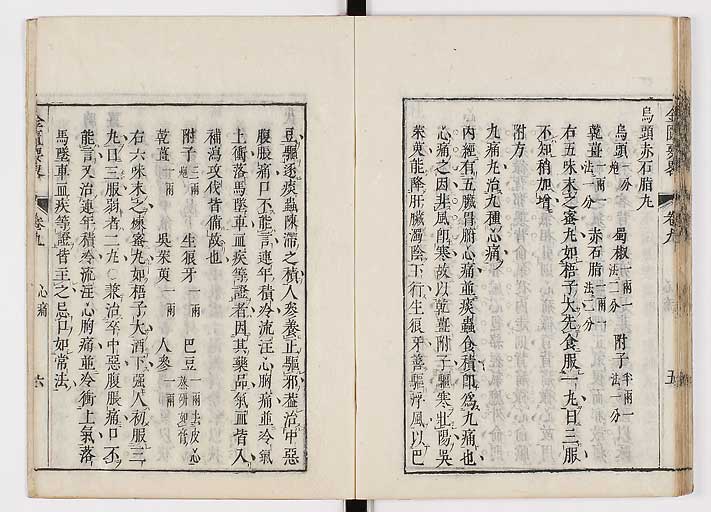 烏頭赤石脂丸
烏頭一分炮 蜀椒一兩一法二分 附子半兩一法一分
乾薑一兩一法一分 赤石脂一兩一法二分
右五味末之蜜丸如梧子大先食服一丸日三服
不知稍加增
九痛丸治九種心痛
附方
內經有五臟胃腑心痛並痰蟲食積即爲九痛也
心痛之因非風即寒故以乾薑附子驅寒壯陽吳
茱萸能降肝臟濁陰下行生狼牙善驅浮風以巴
豆驅逐痰蟲陳滯之積人參養正驅邪兼治中惡
腹脹痛口不能言連年積冷流注心胸痛並冷氣
上衝落馬墜車血疾等證者因其藥品氣血皆入
補瀉攻伐皆備故也
附子三兩炮 生狼牙一兩 巴豆一兩去皮心熬研如膏
乾薑一兩 吳茱萸一兩 人參一兩
右六味末之煉蜜丸如梧子大酒下強人初服三
丸日三服弱者二丸○兼治卒中惡腹脹痛口不
能言又治連年積冷流注心胸痛並冷衝上氣落
馬墜車血疾等證皆主之忌口如常法
金匱要略 卷九 心痛 五
金匱要略 卷九 心痛 六